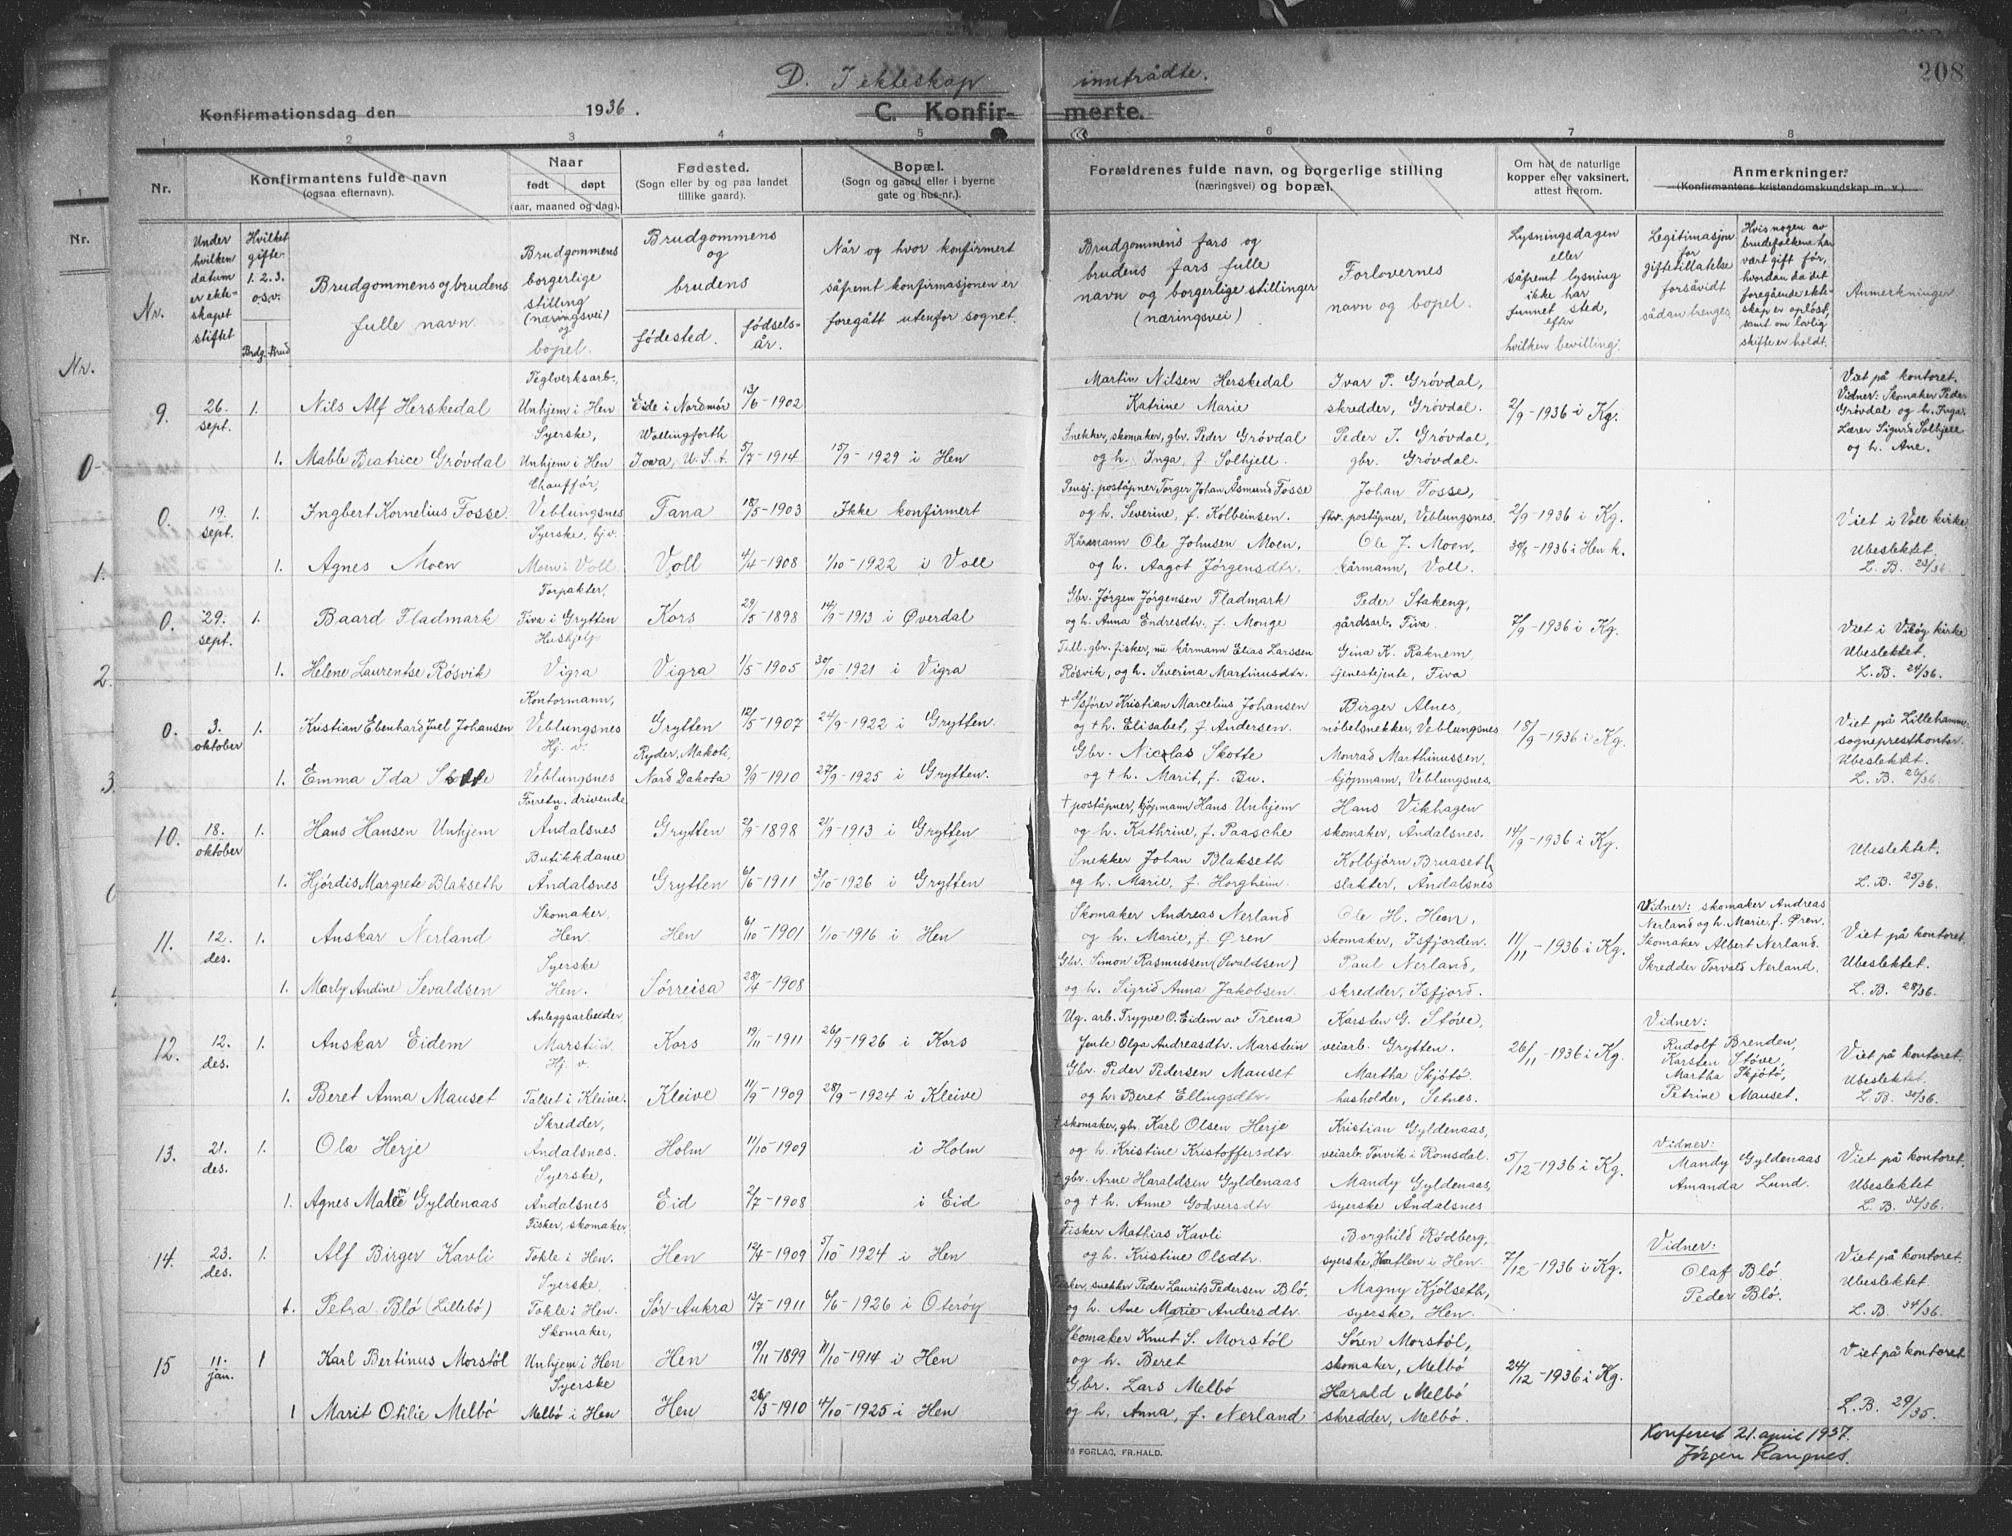 D. I ekteskap inntrådte.
208
Konfirmationsdag den 1936. C. Konfir- merte.
1 2 3 4 5 6 7 8
Nr. Konfirmantens fulde navn (ogsaa efternavn). Naar født døpt (aar, maaned og dag). Fødested. (Sogn eller by og paa landet tillike gaard). Bopæl. (Sogn og gaard eller i byerne gate og hus-nr.). Forældrenes fulde navn, og borgerlige stilling (næringsvei) og bopæl. Om hat de naturlige kopper eller vaksinert, attest herom. Anmerkninger. (Konfirmantens kristendomskundskap m. v.)
Nr. Under hvilken datum er ekteskapet stiftet Hvilket gifte- 1. 2. 3. o.s.v. Brdg. Brud Brudgommens og brudens fulle navn. Brudgommens borgerlige stilling (næringsvei) og bopel. Brudgommens og brudens fødested. fødselsår. Når og hvor konfirmert såfremt konfirmasjonen er foregått utenfor sognet. Brudgommens fars og brudens fars fulle navn og borgerlige stillinger (næringsvei) Forlovernes navn og bopel. Lysningsdagen eller såfremt lysning ikke har funnet sted, efter hvilken bevilling. Legitimasjon for giftetillatelse forsåvidt sådan trenges. Hvis nogen av brudefolkene har vært gift før, hvordan da det foregående ekteskap er opløst, samt om lovlig skifte er holdt. Anmerkninger
9. 26. sept. 1. Nils Alf Herskedal Teglverksarb., Unhjem i Hen Eide i Nordmør 13/6-1902 Martin Nilsen Herskedal Katrine Marie Ivar P. Grøvdal, skredder, Grøvdal. 2/9-1936 i Kg. Viet på kontoret. Vidner: Skomaker Peder Grøvdal og h. Inga. Lærer Sigurd Solhjell og h. Ane.
1. Mable Beatrice Grøvdal Syerske, Unhjem i Hen Wallingforth Iowa, U.S.A. 5/7-1914 15/9-1929 i Hen Snekker, skomaker, gbr. Peder Grøvdal og h. Inga, f. Solhjell. Peder I. Grøvdal, gbr. Grøvdal.
0. 19. sept. 1. Ingbert Kornelius Fosse. Chauffør, Veblungsnes Tana 18/5-1903 Ikke konfirmert Pensj. poståpner Torger Johan Åsmund Fosse og h. Severine, f. Kolbeinsen. Johan Fosse, fhv. poståpner, Veblungsnes. 2/9-1936 i Kg. Viet i Voll kirke
1. Agnes Moen Syerske, hj.v. Moen i Voll. Voll 4/4-1908 1/10-1922 i Voll Kårmann Ole Johnsen Moen, og h. Aagot Jørgensdtr. Ole J. Moen, kårmann, Voll. 30/8-1936 i Hen k. Ubeslektet. L. B. 23/36.
0. 29. sept. 1. Baard Fladmark Forpakter, Fiva i Grytten Kors 29/5-1898 14/9-1913 i Øverdal Gbr. Jørgen Jørgensen Fladmark og h. Anna Endresdtr. f. Monge Peder Stakeng, gårdsarb. Fiva. 7/9-1936 i Kg. Viet i Vikøy kirke
1. Helene Laurentse Røsvik Hushjelp Vigra Vigra 1/5-1905 30/10-1921 i Vigra Till. gbr. fisker, nu kårmann Elias Larssen Røsvik, og h. Severina Martinusdtr. Gina K. Raknem, tjenestejente, Fiva Ubeslektet. L. B. 24/36.
0. 3. oktober 1. Kristian Ebenhard Juel Johansen Kontormann, Veblungsnes Grytten 12/5-1907 24/9-1922 i Grytten. † Gsfører Kristian Marcelius Johansen og † h. Elisabet, f. Andersen. Birger Alnes, møbelsnekker, Veblungsnes 18/9-1936 i Kg. Viet på Lillehamm. sogneprestkontor.
1. Emma Ida Skotte Hj. v. Veblungsnes Ryder, Makoti, Nord Dakota 9/9-1910 27/9-1925 i Grytten. Gbr. Nicolas Skotte og † h. Marit, f. Bu. Monrad Marthinussen, kjøpmann, Veblungsnes. Ubeslektet. L. B. 26/36.
10. 18. oktober 1. Hans Hansen Unhjem Forretn. drivende, Åndalsnes Grytten 2/9-1898 21/9-1913 i Grytten † poståpner, kjøpmann Hans Unhjem og h. Kathrine, f. Paasche Hans Vikhagen skomaker, Åndalsnes. 14/9-1936 i Kg.
1. Hjørdis Margrete Blakseth Butikkdame Åndalsnes Grytten 6/6-1911 31/10-1926 i Grytten Snekker Johan Blakseth og h. Marie, f. Horgheim. Kolbjørn Bruaseth, slakter, Åndalsnes Ubeslektet. L. B. 25/36.
11. 12. des. 1. Anskar Nerland Skomaker, Hen. Hen 6/10-1901 1/10-1916 i Hen Skomaker Andreas Nerland og h. Marie, f. Øren Ole H. Hem, skomaker, Isfjorden. 11/11-1936 i Kg. Vidner: skomaker Andreas Nerland og h. Marie, f. Øren. Skomaker Albert Nerland. Skredder Torvald Nerland. Viet på kontoret.
1. Marly Andine Sevaldsen Syerske Hen. Sørreisa 28/4-1908 Gbr. Simon Rasmussen (Sevaldsen) og h. Sigrid Anna Jakobsen. Paul Nerland, skredder, Isfjord. Ubeslektet. L. B. 28/36.
12. 12. des. 1. Anskar Eidem Anleggsarbeider, Marstein, Kors 19/11-1911 26/9-1926 i Kors Ug. arb. Trygve O. Eidem av Trena Jente Olga Andreasdtr. Marstein Karsten G. Støve, veiarb. Grytten. 26/11-1936 i Kg. Vidner: Rudolf Brenden, Karsten Støve, Martha Skjøtø, Petrine Mauset. Viet på kontoret.
1. Beret Anna Mauset Hj. v. Talset i Kleive. Kleive 11/9-1909 28/9-1924 i Kleive Gbr. Peder Pedersen Mauset og h. Beret Ellingsdtr. Martha Skjøtø, husholder, Setnes. Ubeslektet. L. B. 30/36.
13. 21. des. 1. Ola Herje Skredder, Åndalsnes. Holm 11/10-1909 i Holm † skomaker, gbr. Karl Olsen Herje og h. Kristine Kristoffersdtr. Kristian Gyldenaas, veiarb. Torvik i Romsdal. 5/12-1936 i Kg. Vidner: Mandy Gyldenaas Amanda Lund. Viet på kontoret.
1. Agnes Malene Gyldenaas Syerske, Åndalsnes Eid 2/7-1908 i Eid † gbr. Arne Haraldsen Gyldenaas og † h. Anne Godversdtr. Mandy Gyldenaas, syerske Åndalsnes Ubeslektet L. B. 33/36.
14. 23. des. 1. Alf Birger Kavli Fisker, skomaker, Tokle i Hen. Hen 12/4-1909 5/10-1924 i Hen Fisker Mathias Kavli og h. Kristine Olsdtr. Borghild Rødberg, syerske, Hatlen i Hen. 7/12-1936 i Kg. Vidner: Olaf Blø Peder Blø. Viet på kontoret.
1. Petra Blø (Lillebø) Syerske Tokle i Hen. Sør-Aukra 13/7-1911 6/6-1926 i Oterøy Fisker, snekker Peder Laurits Pedersen Blø, og h. Ane Marie Andersdtr. Magny Kjølseth, syerske, Hen. Ubeslektet. L. B. 34/36.
15 11. jan. 1 Karl Bertinus Morstøl Skomaker, Unhjem i Hen Hen 19/11-1899 11/10-1914 i Hen Skomaker Knut S. Morstøl og h. Beret Søren Morstøl, skomaker, Melbø 24/12-1936 i Kg. Viet på kontoret
1 Marit Otilie Melbø Syerske Melbø i Hen Hen 26/3-1910 4/10-1925 i Hen Gbr. Lars Melbø og h. Anna, f. Nerland Harald Melbø skredder, Melbø. L. B. 29/35.
FORLAG, FR.HALD.
Konferert 21. april 1937.
Jørgen Rangnes.